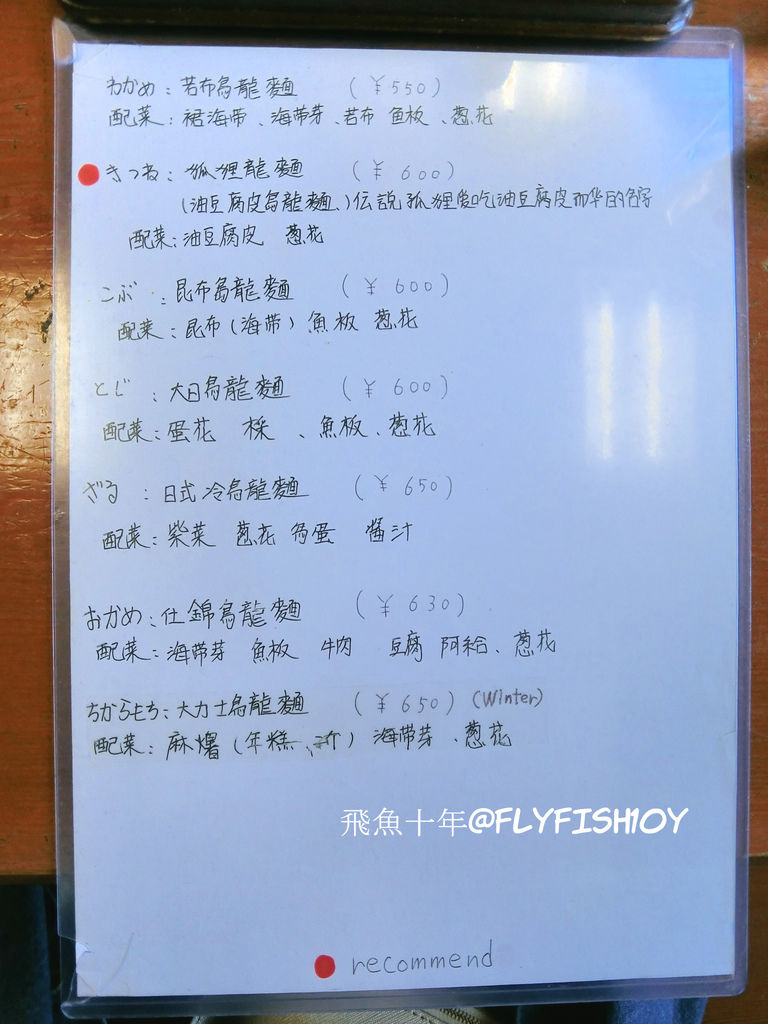 わかめ：若布烏龍麵 (￥550)
配菜：裙海带、海带芽、若布 鱼板、葱花
きつね：狐狸龍麵 (￥600)
(油豆腐皮烏龍麵、)伝説狐狸爱吃油豆腐皮而华的名字
配菜：油豆腐皮 葱花
こぶ：昆布烏龍麵 (￥600)
配菜：昆布(海带) 魚板 葱花
とじ：大日烏龍麵 (￥600)
配菜：蛋花 、魚板、葱花
ざる：日式冷烏龍麵 (￥650)
配菜：紫菜 葱花 鸟蛋 醬汁
おかめ：仕錦烏龍麵 (￥630)
配菜：海带芽 魚板 牛肉 豆腐 阿給、葱花
ちからもち：大力士烏龍麵 (￥650) (Winter)
配菜：麻 (年糕、) 海带芽、葱花
飛魚十年@FLYFISH10Y
recommend